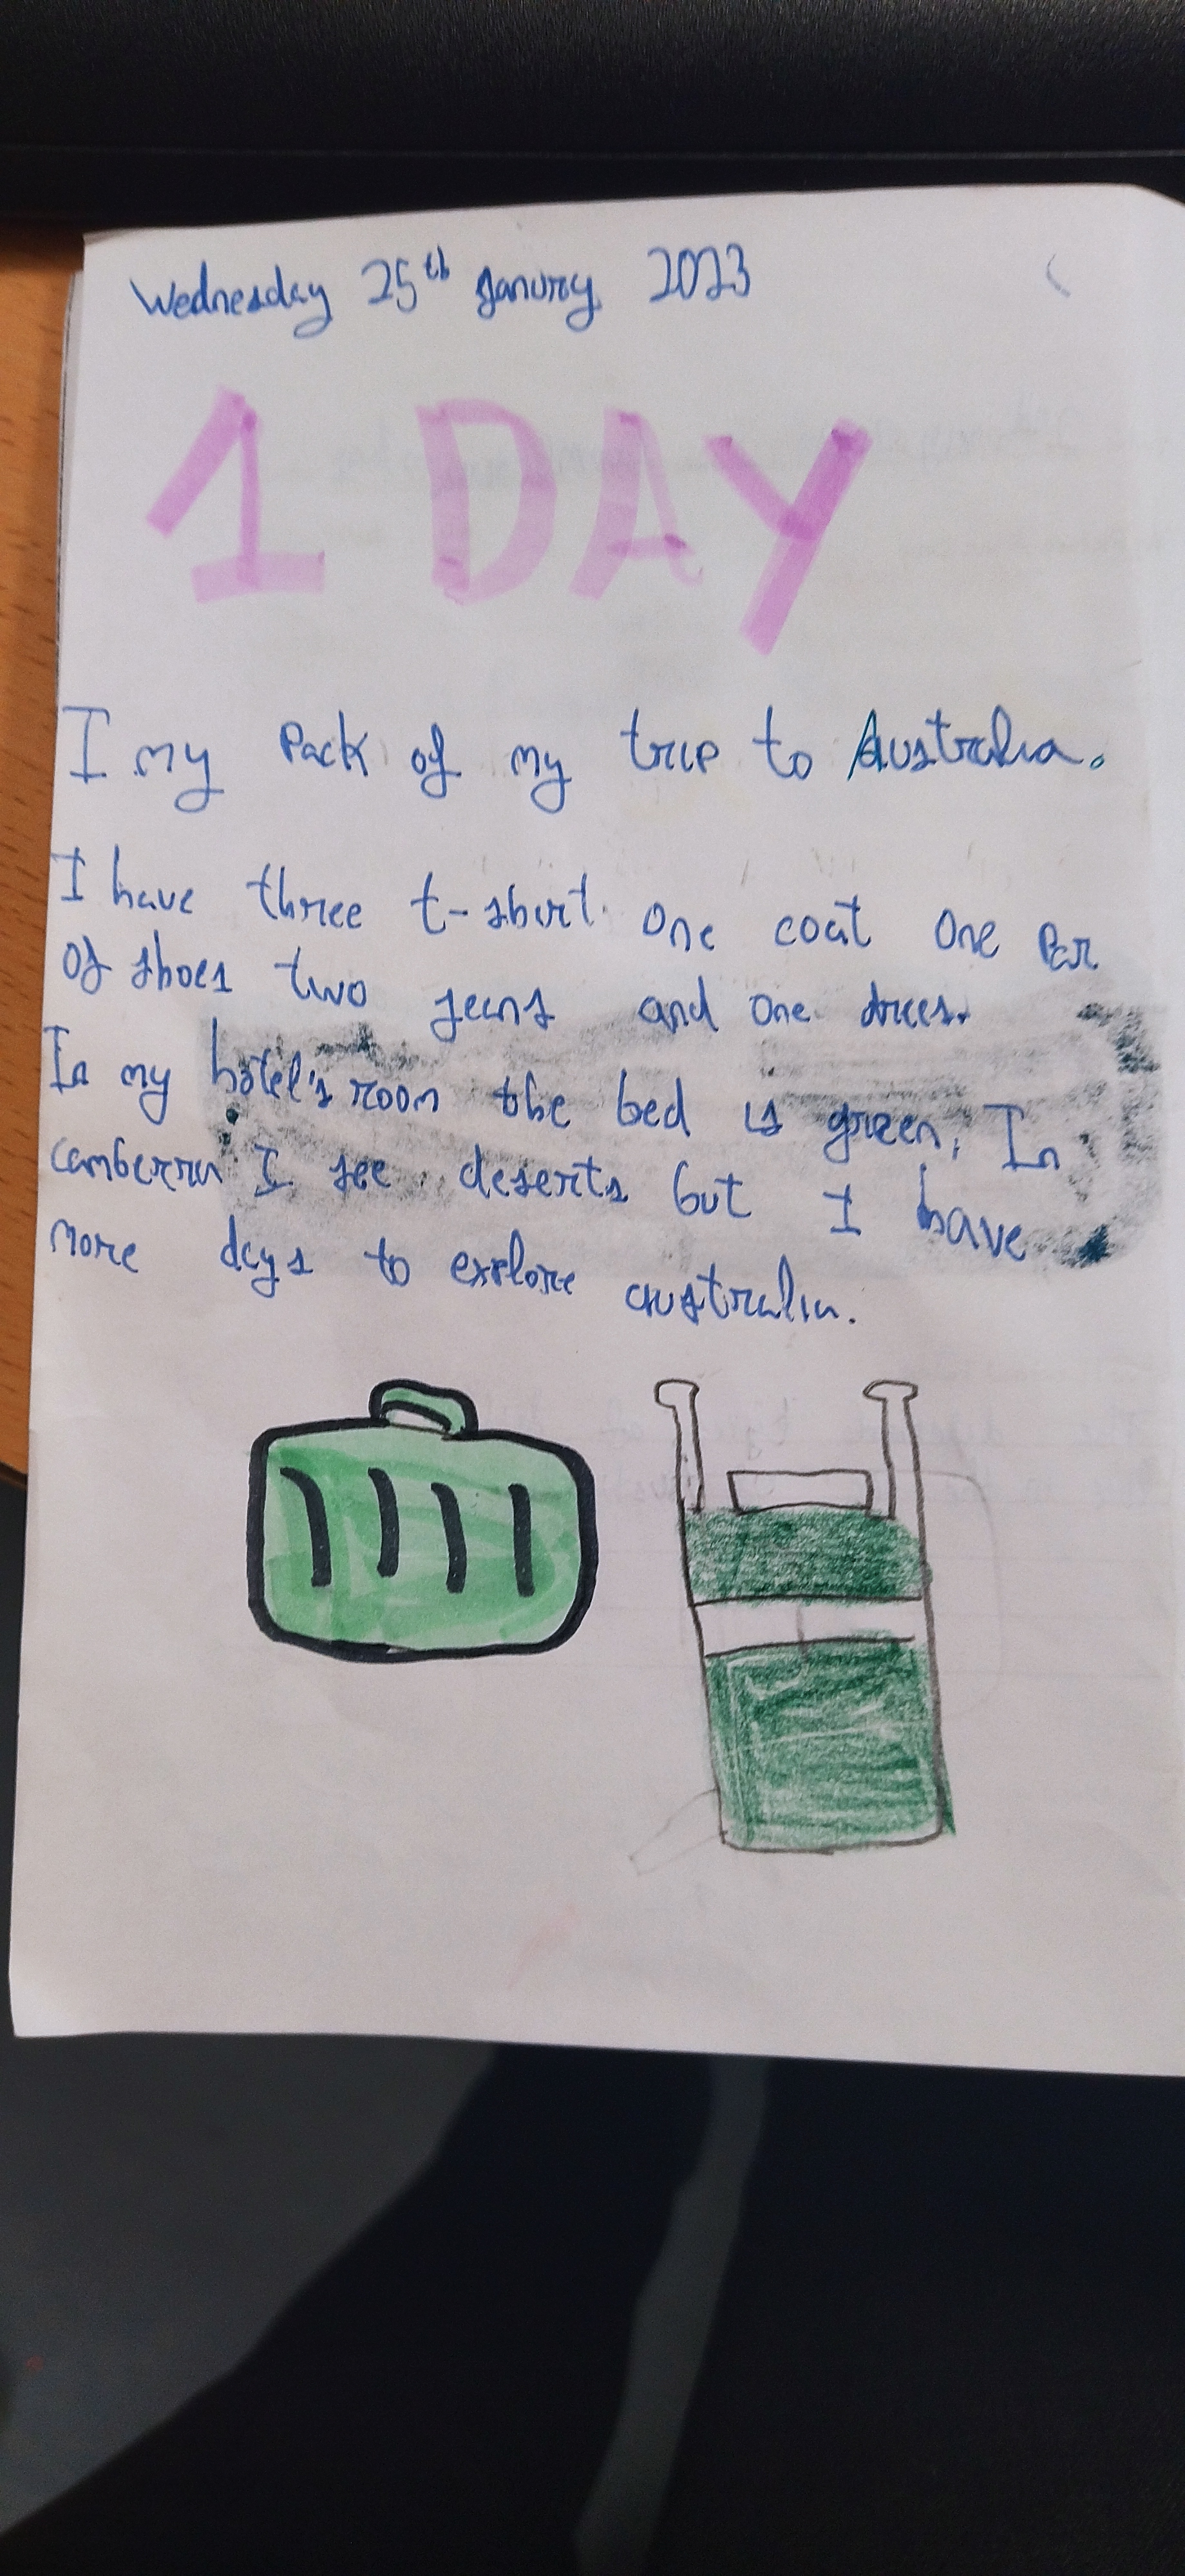 Wednesday 25th Janury 2023
1 DAY
I my Pack of my trip to Australia.
I have three t-shirt one coat one Par
of shoes two jeans and one drees.
In my hotel's room the bed is green, In
camberra I see deserts but I have
more days to explore australia.